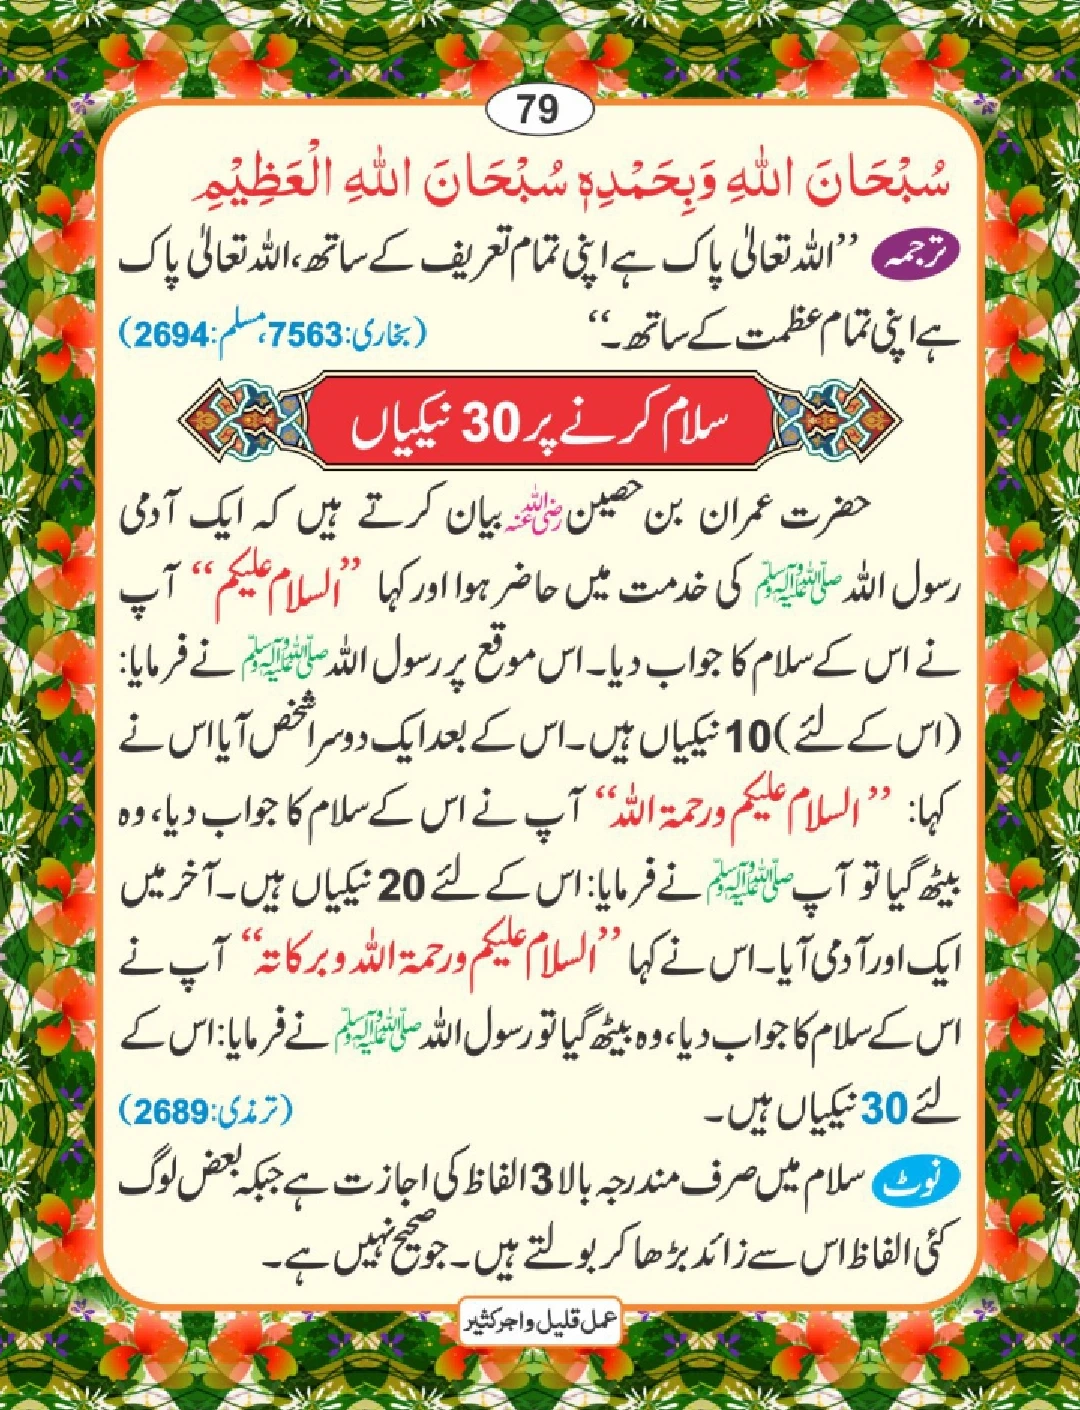 79
سُبْحَانَ اللهِ وَبِحَمْدِهٖ سُبْحَانَ اللهِ الْعَظِيْمِ
ترجمہ ’’اللہ تعالیٰ پاک ہے اپنی تمام تعریف کے ساتھ، اللہ تعالیٰ پاک
ہے اپنی تمام عظمت کے ساتھ۔‘‘ (بخاری:7563، مسلم:2694)
سلام کرنے پر 30 نیکیاں
حضرت عمران بن حصین رضی اللہ عنہ بیان کرتے ہیں کہ ایک آدمی
رسول اللہ صلی اللہ علیہ وآلہ وسلم کی خدمت میں حاضر ہوا اور کہا ’’السلام علیکم‘‘ آپ
نے اس کے سلام کا جواب دیا۔ اس موقع پر رسول اللہ صلی اللہ علیہ وآلہ وسلم نے فرمایا:
(اس کے لئے) 10 نیکیاں ہیں۔ اس کے بعد ایک دوسرا شخص آیا اس نے
کہا: ’’السلام علیکم ورحمۃ اللہ‘‘ آپ نے اس کے سلام کا جواب دیا، وہ
بیٹھ گیا تو آپ صلی اللہ علیہ وآلہ وسلم نے فرمایا: اس کے لئے 20 نیکیاں ہیں۔ آخر میں
ایک اور آدمی آیا۔ اس نے کہا ’’السلام علیکم ورحمۃ اللہ وبرکاتہ‘‘ آپ نے
اس کے سلام کا جواب دیا، وہ بیٹھ گیا تو رسول اللہ صلی اللہ علیہ وآلہ وسلم نے فرمایا: اس کے
لئے 30 نیکیاں ہیں۔ (ترمذی:2689)
نوٹ سلام میں صرف مندرجہ بالا 3 الفاظ کی اجازت ہے جبکہ بعض لوگ
کئی الفاظ اس سے زائد بڑھا کر بولتے ہیں۔ جو صحیح نہیں ہے۔
عمل قلیل واجر کثیر